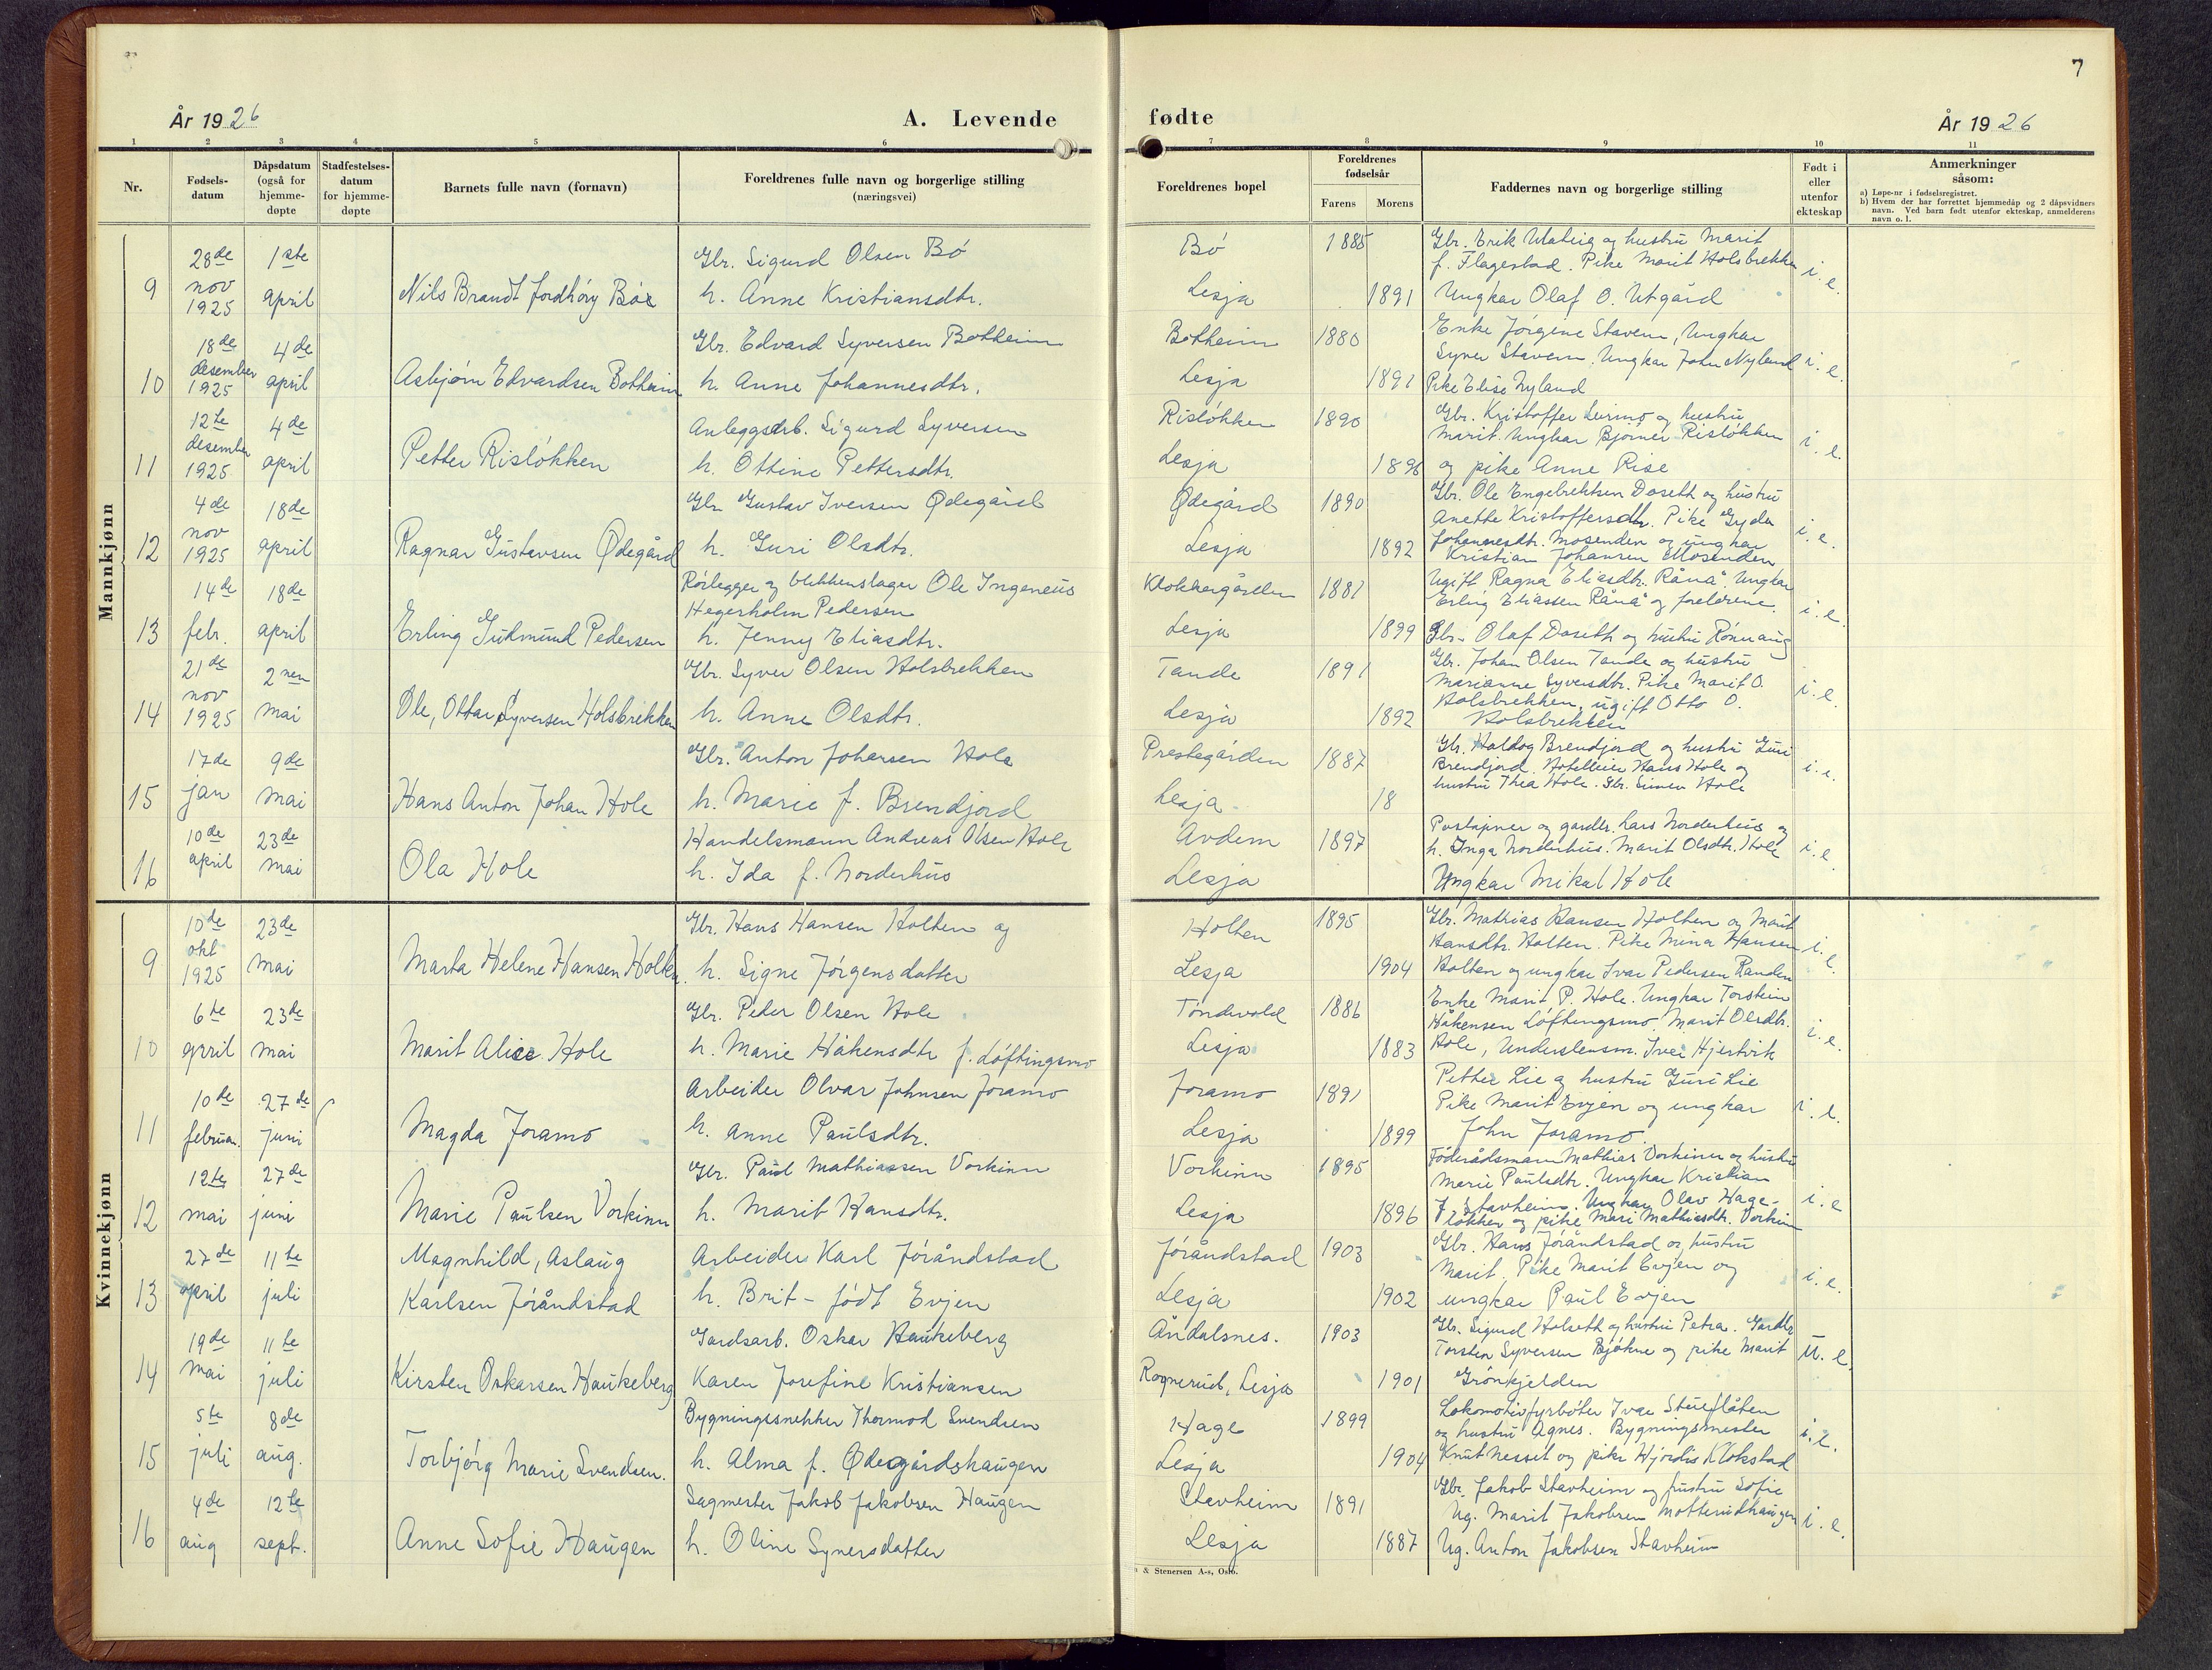 7
År 1926
A. Levende fødte
År 1926
1 2 3 4 5 6 7 8 9 10 11
Nr.
Fødsels-
datum
Dåpsdatum
(også for
hjemme-
døpte
Stadfestelses-
datum
for hjemme-
døpte
Barnets fulle navn (fornavn)
Foreldrenes fulle navn og borgerlige stilling
(næringsvei)
Foreldrenes bopel
Foreldrenes
fødselsår
Farens Morens
Faddernes navn og borgerlige stilling
Født i
eller
utenfor
ekteskap
Anmerkninger
såsom:
a) Løpe-nr i fødselsregistret.
b) Hvem der har forrettet hjemmedåp og 2 dåpsvidners
navn. Ved barn født utenfor ekteskap, anmelderens
navn o. l.
Mannkjønn
9
28de
nov
1925
1ste
april
Nils Brandt Jordhøy Bøe
Gbr. Sigurd Olsen Bø
h. Anne Kristiansdtr.
Bø
Lesja
1885
1891
Gbr. Erik Utatrig og hustru Marit
f. Flagestad. Pike Marit Holsbrekken
Ungkar Olaf O. Utgård
i. e.
10
18de
desember
1925
4de
april
Asbjørn Edvardsen Bottheim
Gbr. Edvard Syversen Bottheim
h. Anne Johannesdtr.
Bottheim
Lesja
1880
1891
Enke Jørgine Stavem, Ungkar
Syver Stavem. Ungkar John Nyland
Pike Elise Nyland
i. e.
11
12te
desember
1925
4de
april
Petter Risløkken
Anleggsarb. Sigurd Syversen
h. Ottine Pettersdtr.
Risløkken
Lesja
1890
1896
Gbr. Kristoffer Leirmo og hustru
Marit. Ungkar Bjørner Risløkken
og pike Anne Rise
i. e.
12
4de
nov
1925
18de
april
Ragnar Gustavsen Ødegård
Gbr Gustav Iversen Ødegård
h. Guri Olsdtr.
Ødegård
Lesja
1890
1892
Gbr. Ole Engebrektsen Doseth og hustru
Anette Kristoffersdtr. Pike Gyda
Johannesdtr. Mosenden og ungkar
Kristian Johansen Mosenden
i. e.
13
14de
febr.
18de
april
Erling Gudmund Pedersen
Rørlegger og blikkenslager Ole Ingeneus
Hegerholm Pedersen
h. Jenny Eliasdtr.
Klokkergården
Lesja
1881
1899
Ugift Ragna Eliasdtr. Rånå. Ungkar
Erling Eliassen Rånå og foreldrene.
Gbr. Olaf Doseth og hustru Rønnaug
i. e.
14
21de
nov
1925
2nen
mai
Ole, Ottar Syversen Holsbrekken
Gbr. Syver Olsen Holsbrekken
h. Anne Olsdtr.
Tande
Lesja
1891
1892
Gbr. Johan Olsen Tande og hustru
Marianne Syversdtr. Pike Marit O.
Holsbrekken, ugift Otto O.
Holsbrekken
i. e.
15
17de
jan
9de
mai
Hans Anton Johan Hole
Gbr. Anton Johansen Hole
h. Marie f. Brendjord
Prestegården
Lesja
1887
18
Gbr. Haldog Brendjord og hustru Guri
Brendjord. Hotelleier Hans Hole og
hustru Thea Hole. Gbr. Simen Hole
i. e.
16
10de
april
23de
mai
Ola Hole
Handelsmann Andreas Olsen Hole
h. Ida f. Norderhus
Avdem
Lesja
1897
Poståpner og gardbr. Lars Norderhus og
h. Inga Norderhus. Marit Olsdtr. Hole
Ungkar Mikal Hole
i. e.
Kvinnekjønn
9
10de
okt
1925
23de
mai
Marta Helene Hansen Holten
Gbr. Hans Hansen Holten og
h. Signe Jørgensdatter
Holten
Lesja
1895
1904
Gbr. Mathias Hansen Holten og Marit
Hansdtr. Holten. Pike Mina Hansen
Holten og ungkar Ivar Pedersen Randen
i. e.
10
6te
april
23de
mai
Marit Alice Hole
Gbr. Peder Olsen Hole
h. Marie Håkensdtr f. Løftingsmo
Tøndevold
Lesja
1886
1883
Enke Marit P. Hole. Ungkar Torstein
Håkensen Løftingsmo. Marit Olsdtr.
Hole, Underslensm. Iver Hjertvik
i. e.
11
10de
februar.
27de
juni
Magda Joramo
Arbeider Olvar Johnsen Joramo
h. Anne Paulsdtr.
Joramo
Lesja
1891
1899
Petter Lie og hustru Guri Lie
Pike Marit Evjen og ungkar
John Joramo
i. e.
12
12te
mai
27de
juni
Marie Paulsen Vorkinn
Gbr. Paul Mathiassen Vorkinn
h. Marit Hansdtr.
Vorkinn
Lesja
1895
1896
Føderådsmann Mathias Vorkinn og hustru
Marie Paulsdtr. Ungkar Kristian
J. Stavheim. Ungkar Olav Hage-
løkken og pike Mari Mathiasdtr. Vorkinn
i. e
13
27de
april
11te
juli
Magnhild, Aslaug
Karlsen Jøråndstad
Arbeider Karl Jøråndstad
h. Brit - født Evjen
Jøråndstad
Lesja
1903
1902
Gbr. Hans Jøråndstad og hustru
Marit. Pike Marit Evjen og
ungkar Paul Evjen
i. e.
14
19de
mai
11te
juli
Kirsten Oskarsen Haukeberg
Gardsarb. Oskar Haukeberg
Karen Josefine Kristiansen
Åndalsnes.
Rognerud, Lesja
1903
1901
Gbr. Sigurd Holseth og hustru Petra. Gardbr
Torstein Syversen Bjøkne og pike Marit
Grønkjelden
U. e.
15
5te
juli
8de
aug.
Torbjørg Marie Svendsen.
Bygningssnekker Thormod Svendsen
h. Alma f. Ødegårdshaugen
Hage
Lesja
1899
1904
Lokomotivfyrbøter Ivar Stueflåten
og hustru Agnes. Bygningsmester
Knut Nesset og pike Hjørdis Klokstad
i. e.
16
4de
aug
12te
sept.
Anne Sofie Haugen
Sagmester Jakob Jakobsen Haugen
h. Oline Syversdatter
Stavheim
Lesja
1891
1887
Gbr. Jakob Stavheim og hustru Sofie
Ug. Marit Jakobsen Motterudhaugen
Ug. Anton Jakobsen Stavheim
i. e.
& Stenersen A-s, Oslo.